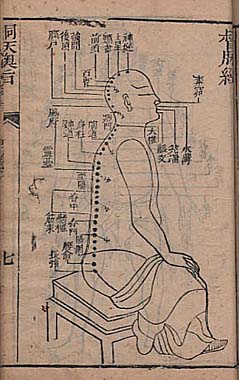 督脈經
神庭
上星
前頂
百會
強間
後頂
腦戶
素髎
水溝
兌端
齦交
風府
瘂門
大椎
陶道
身柱
神道
靈臺
至陽
筋束
脊中
懸樞
命門
長強
洞天奧旨
七